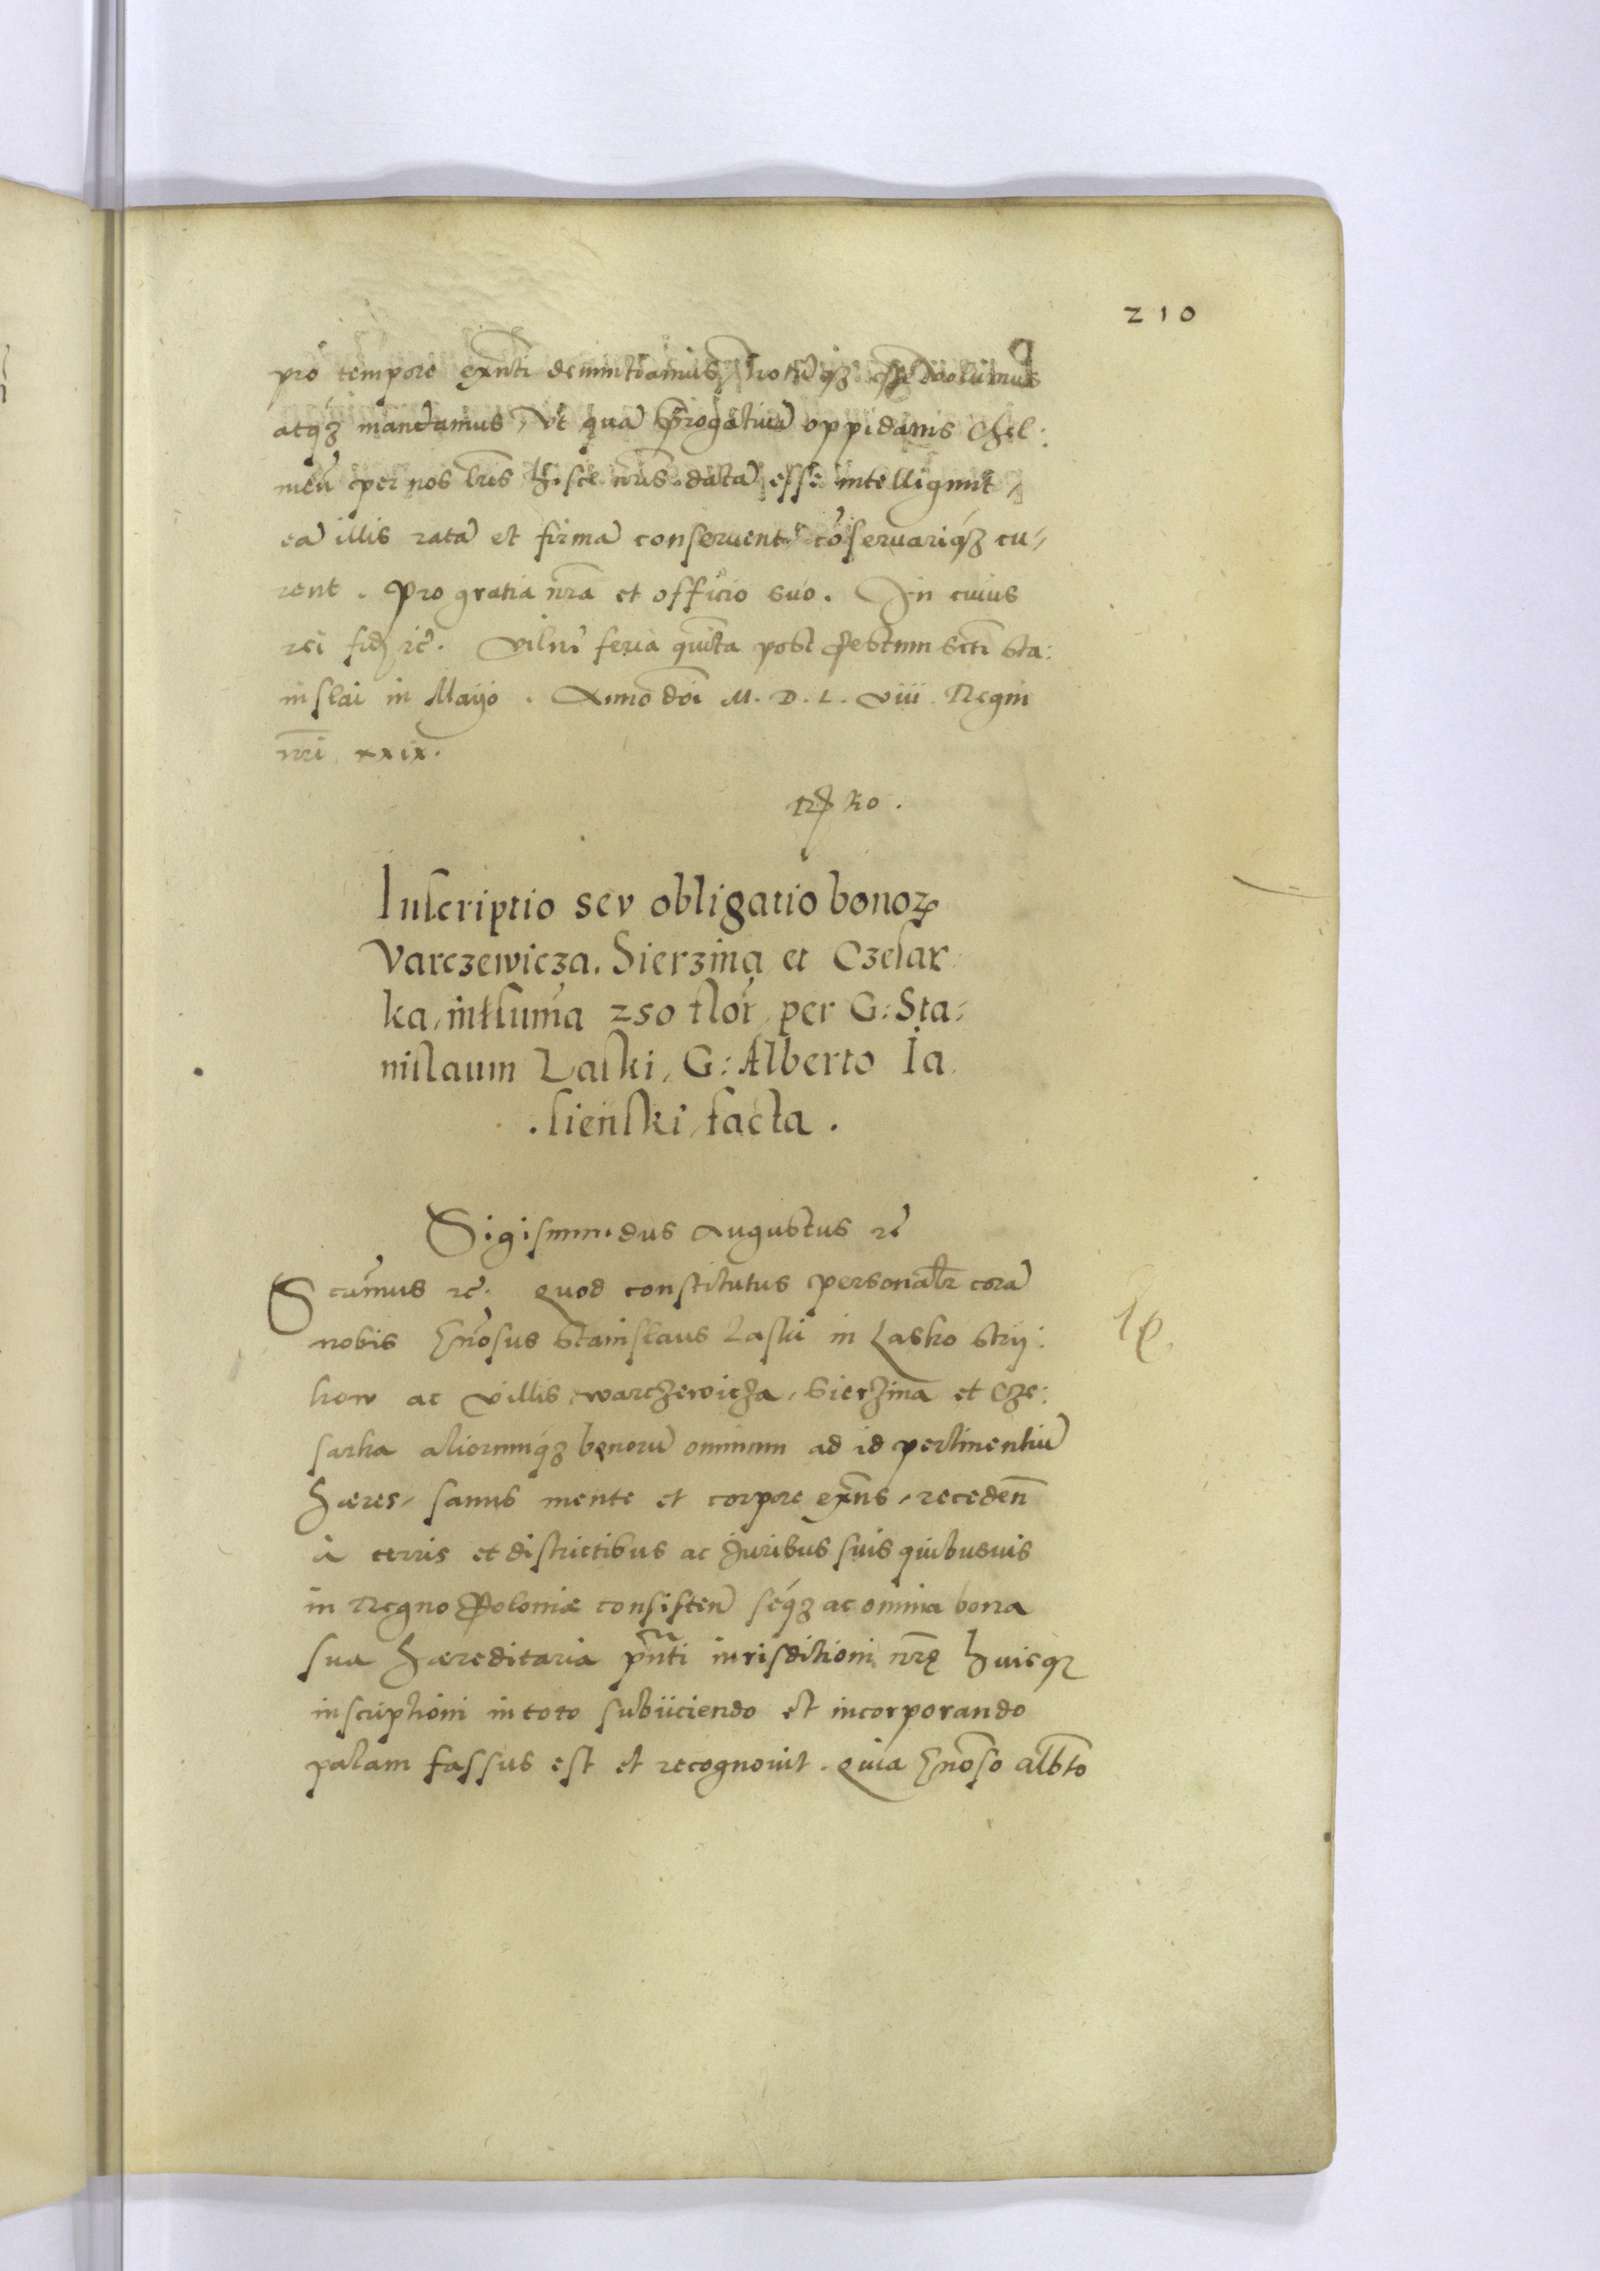 210
pro tempore exñti denuntiamus, notuqz esse volumus
atqz mandamus, Vt qua prerogatiua oppidanis Chel:
meñ per nos lris hisce nris data esse intelligunt,
ea illis rata et firma conseruent coseruariqz cu,
rent. pro gratia nra et officio suo. In cuius
rei fid rc. Vilne feria quita post Festum scti Sta:
nislai in Mayo. Anno doi M. D. L. viii Regni
nri xxix.
Inscriptio seu obligatio bonoꝝ
Varczewicza. Sierzina et Czesar
ka, in suma 250 flor, per G: Sta,
nislaum Laski, G: Alberto Ia
.sieński facta.
Sigismundus Augustus rc
Sramus rc. Quod constitutus personalr cora
nobis Gnosus Stanislaus Laski in Lasko Stry:
kow ac villis warczewicza, Sierzina et Cze:
sarka aliorumqz bonoru omnium ad id pertinentiu
haeres, sanus mente et corpore exns, recedeñ
a terris et districtibus ac Juribus suis quibusuis
in Regno Poloniæ consisteñ séqz ac omnia bona
sua haereditaria pñti iurisditioni nrę huicqz
inscriptioni in toto subiiciendo et incorporando
palam fassus est et recognouit. Quia Gnoso Albto